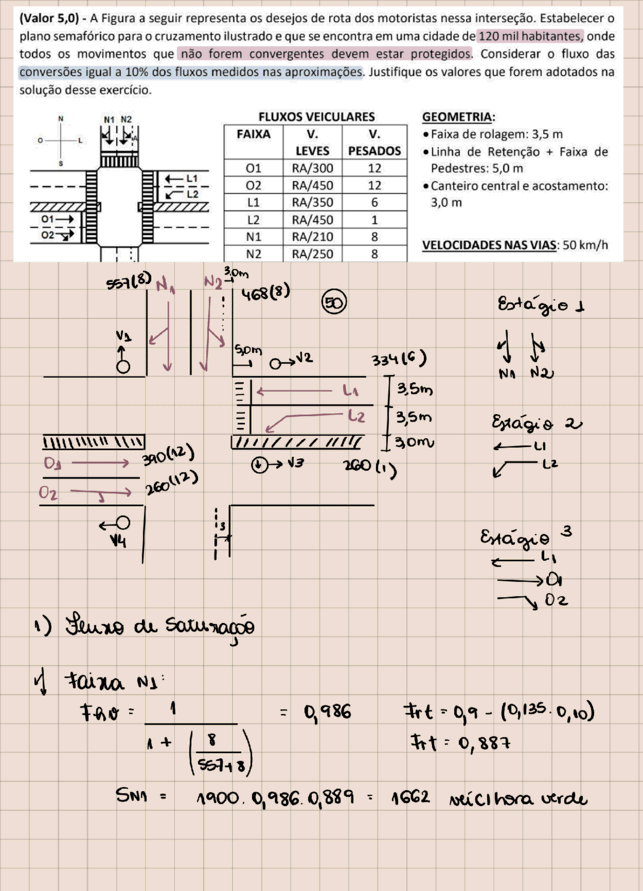 (Valor 5,0) - A Figura a seguir representa os desejos de rota dos motoristas nessa interseção. Estabelecer o
plano semafórico para o cruzamento ilustrado e que se encontra em uma cidade de 120 mil habitantes, onde
todos os movimentos que não forem convergentes devem estar protegidos. Considerar o fluxo das
conversões igual a 10% dos fluxos medidos nas aproximações. Justifique os valores que forem adotados na
solução desse exercício.
N
O L
S
N1 N2
L1
L2
O1
O2
FLUXOS VEICULARES
FAIXA V. LEVES V. PESADOS
O1 RA/300 12
O2 RA/450 12
L1 RA/350 6
L2 RA/450 1
N1 RA/210 8
N2 RA/250 8
GEOMETRIA:
• Faixa de rolagem: 3,5 m
• Linha de Retenção + Faixa de
Pedestres: 5,0 m
• Canteiro central e acostamento:
3,0 m
VELOCIDADES NAS VIAS: 50 km/h
557(8) N1 N2 3,0m
468(8) 50
V1 5,0m V2 334(6)
L1 3,5m
L2 3,5m
3,0m
O1 390(12) V3 260(1)
O2 260(12)
V4 3
Estágio 1
N1 N2
Estágio 2
L1
L2
Estágio 3
L1
O1
O2
1) Fluxo de Saturação
Faixa N1:
Fhv = 1 / (1 + (8 / 557+8)) = 0,986 Frt = 0,9 - (0,135 . 0,10)
Frt = 0,887
SN1 = 1900 . 0,986 . 0,889 = 1662 veíc/hora verde